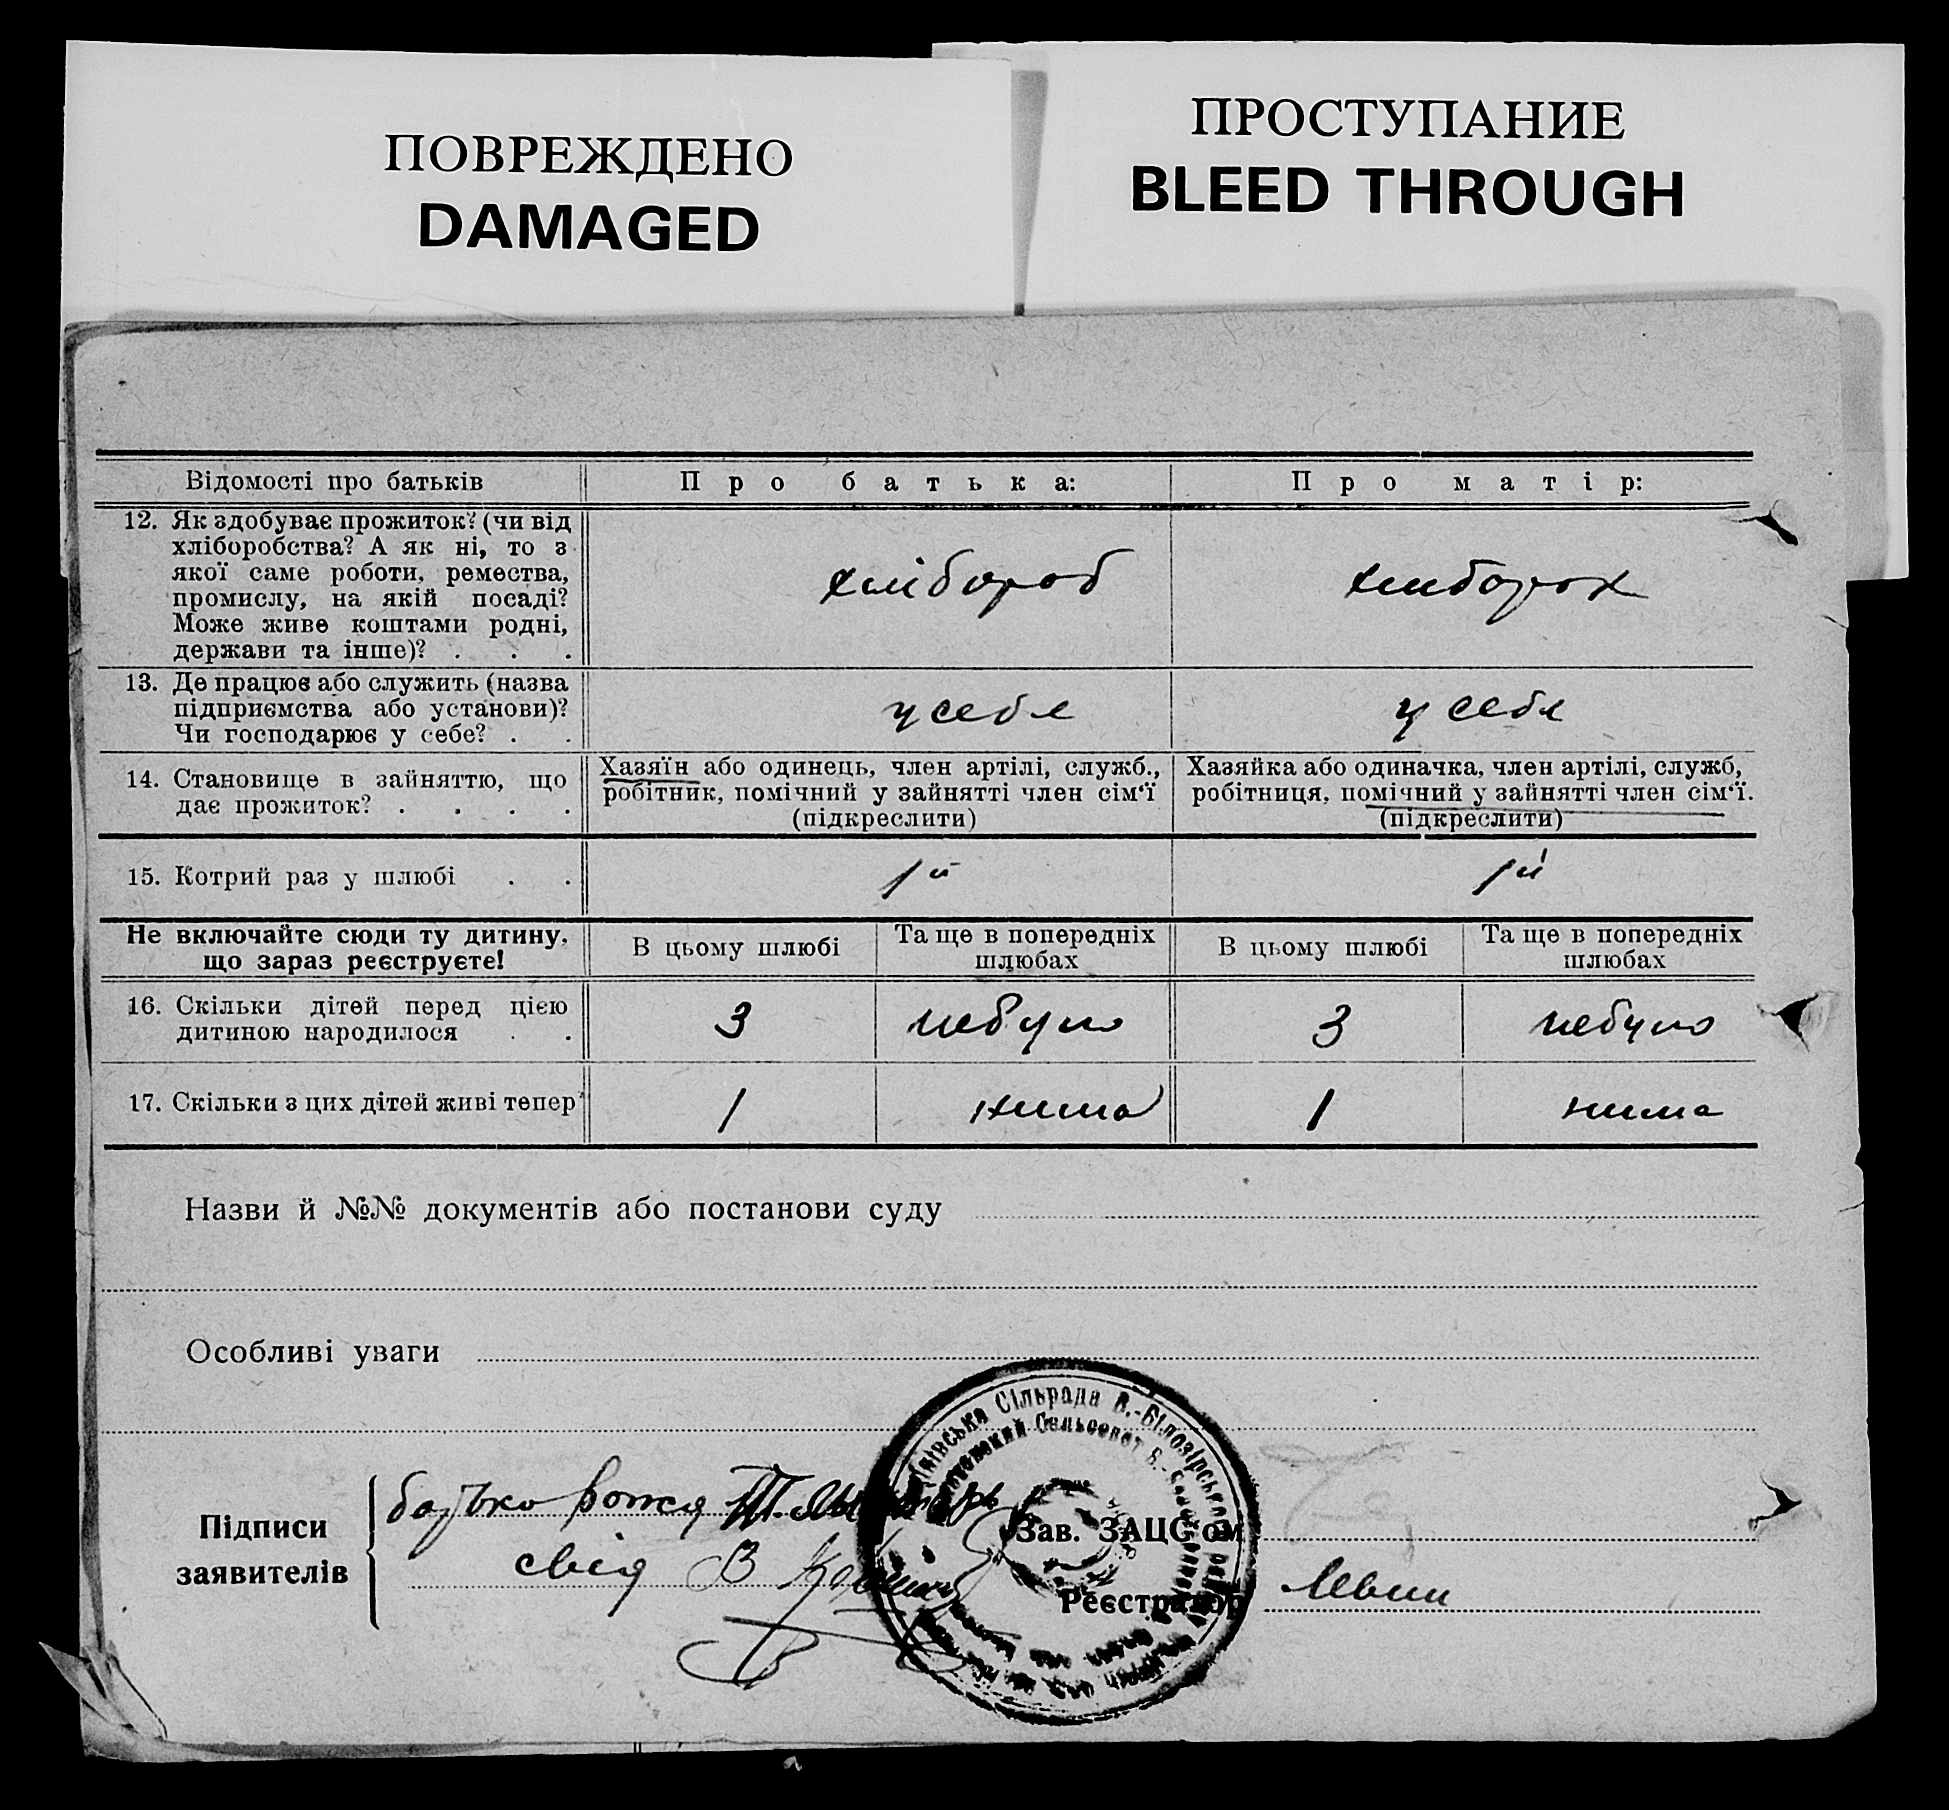 ПОВРЕЖДЕНО
DAMAGED
ПРОСТУПАНИЕ
BLEED THROUGH
Відомості про батьків
Про батька:
Про матір:
12. Як здобуває прожиток? (чи від
хліборобства? А як ні, то з
якої саме роботи, ремества,
промислу, на якій посаді?
Може живе коштами родні,
держави та інше)? . . .
хлібороб
13. Де працює або служить (назва
підприємства або установи)?
Чи господарює у себе? . .
у себе
у себе
14. Становище в зайняттю, що
дає прожиток? . . . .
Хазяїн або одинець, член артілі, служб.,
робітник, помічний у зайнятті член сім'ї
(підкреслити)
Хазяйка або одиначка, член артілі, служб,
робітниця, помічний у зайнятті член сім'ї.
(підкреслити)
15. Котрий раз у шлюбі . .
1й
1й
Не включайте сюди ту дитину,
що зараз реєструєте!
В цьому шлюбі
Та ще в попередніх
шлюбах
В цьому шлюбі
Та ще в попередніх
шлюбах
16. Скільки дітей перед цією
дитиною народилося . .
3
небуло
3
небуло
17. Скільки з цих дітей живі тепер
1
нима
1
нима
Назви й №№ документів або постанови суду
Особливі уваги
Підписи
заявителів
батько
свід В
Сільрада В.-Білозірського
Сельсовет
Зав. ЗАЦС'ом
Реєстратор